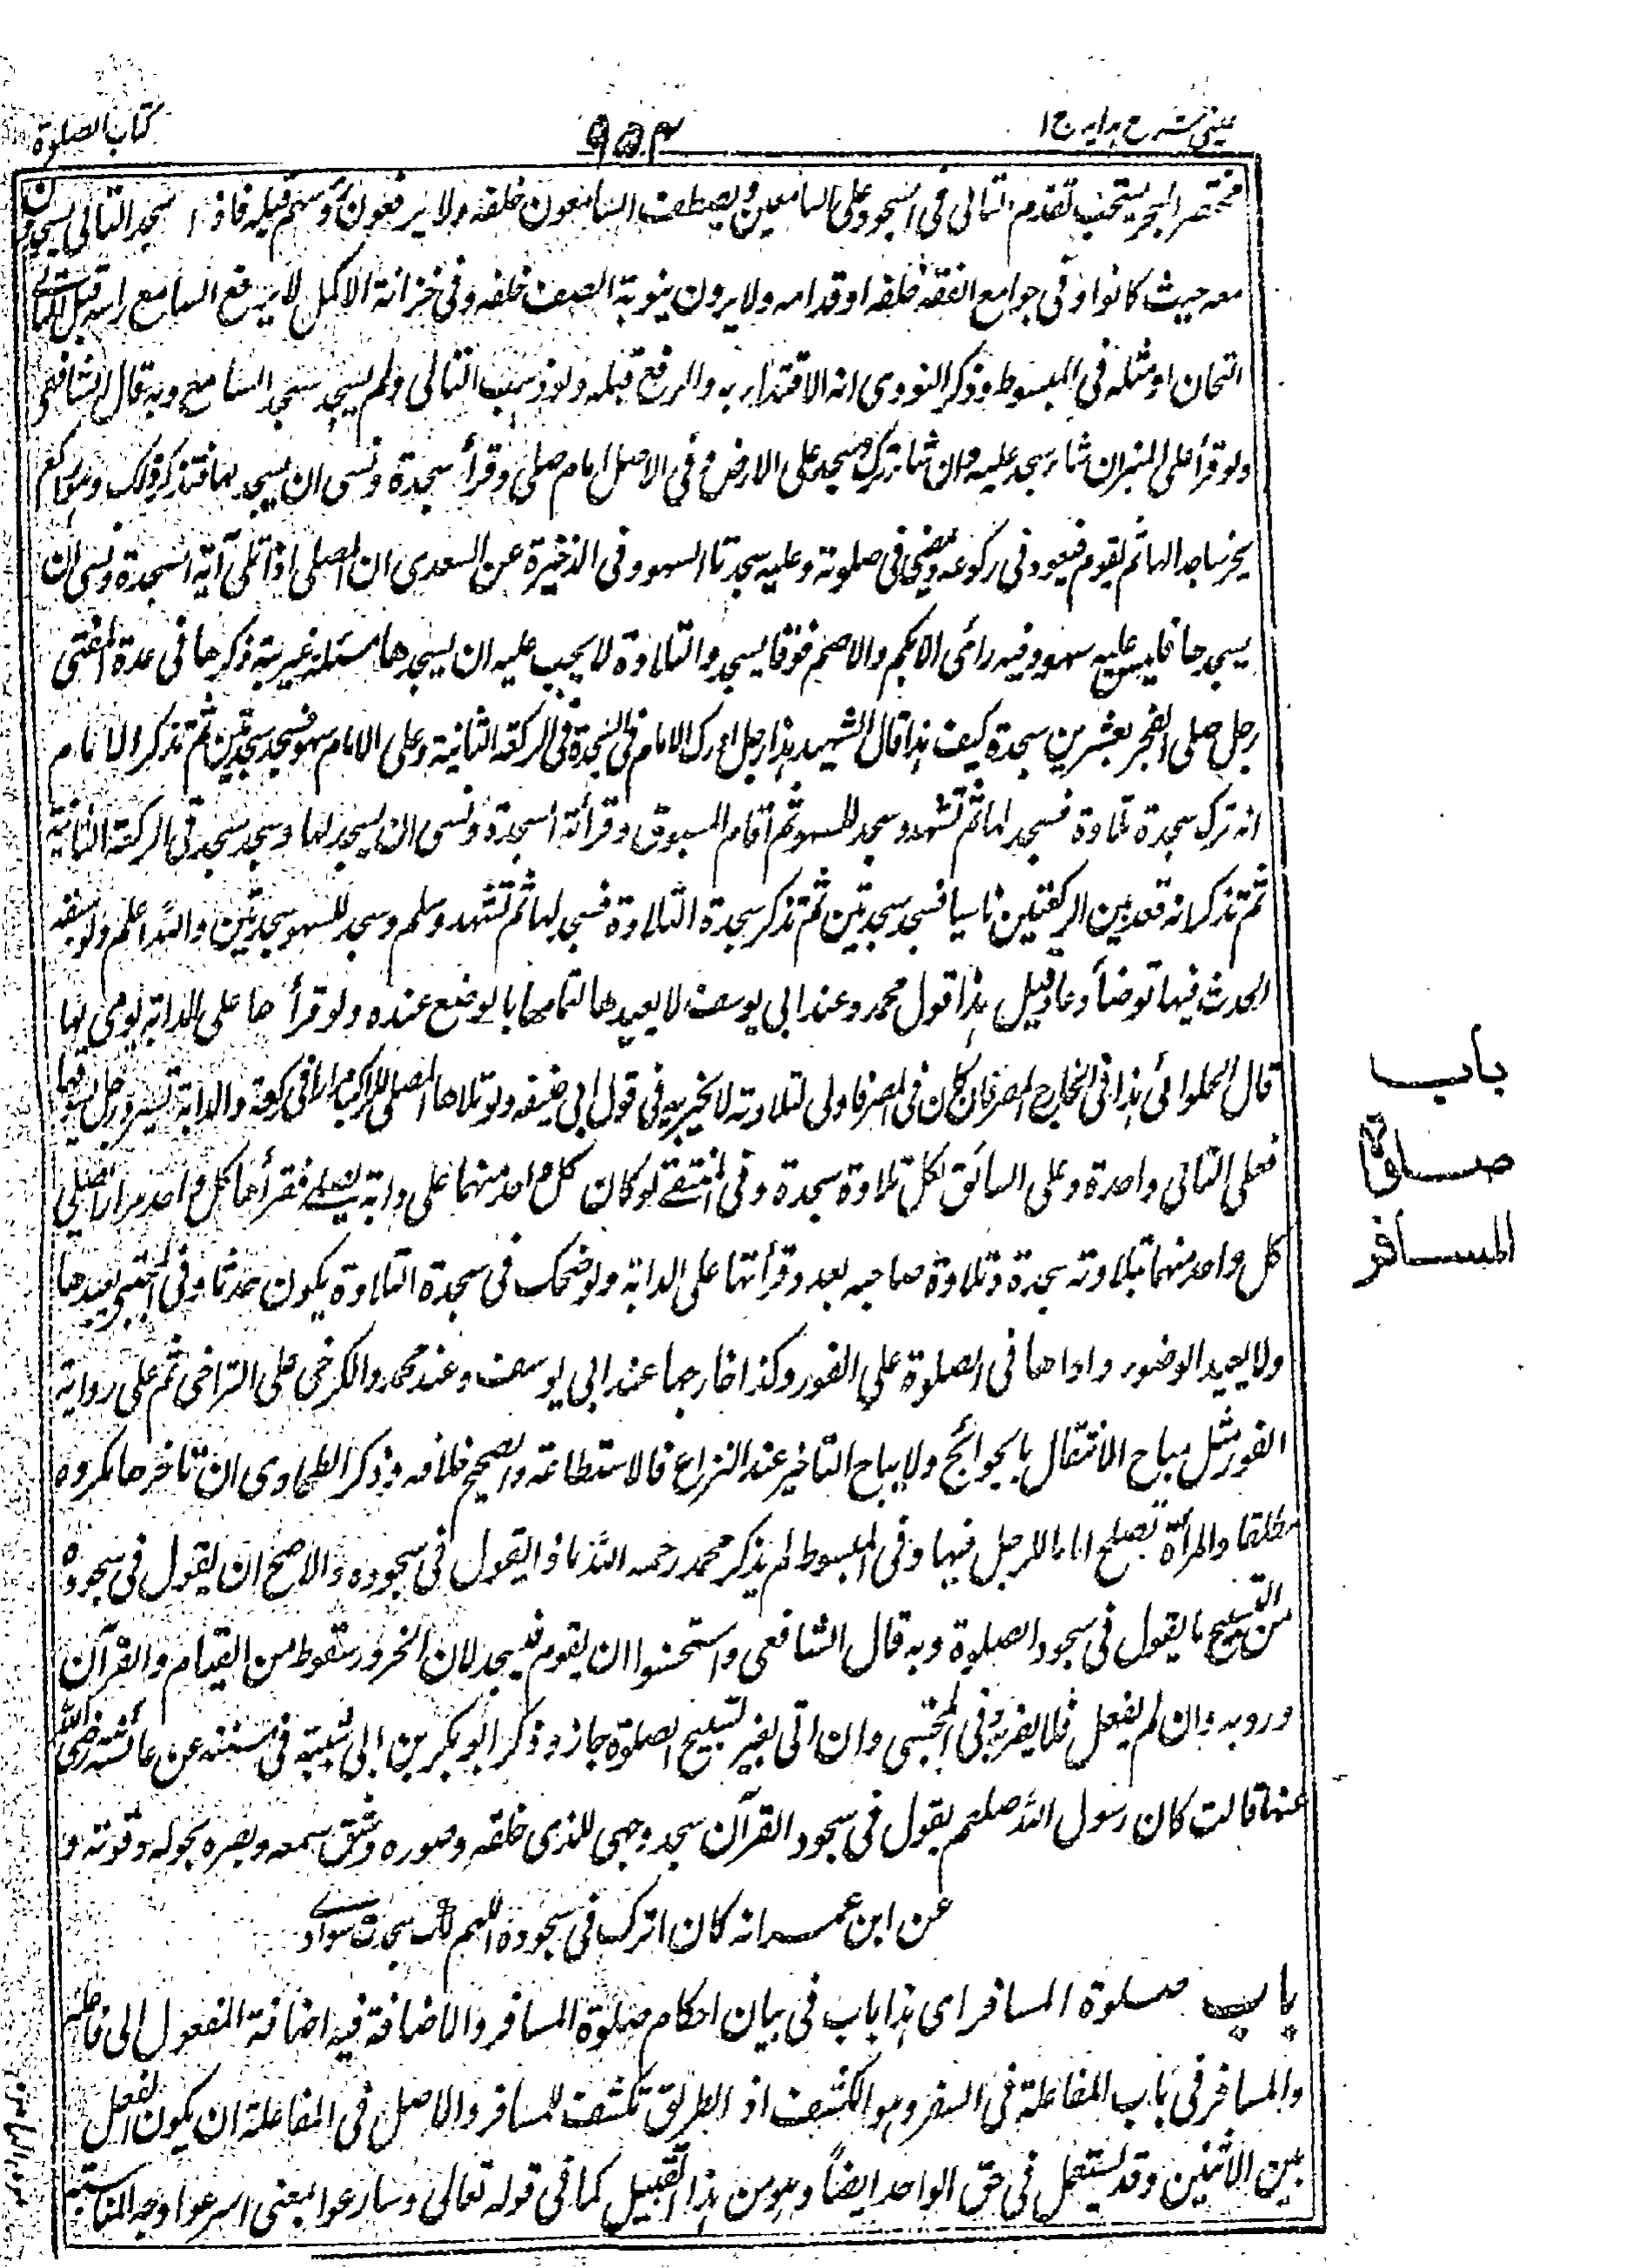 عینی شرح ہدایہ ج ۱
۹۵۴
کتاب الصلوة
مختصر البحر یستحب تقدم التالی فی السجود علی السامعین ویصطف السامعون خلفه ولا یرفعون رؤسهم قبله فاذا سجد التالی یسجدون
معه حیث کانوا وفی جوامع الفقه خلفه او قدامه ولا یرون بنوبة الصف خلفه وفی خزانة الاکمل لا یرفع السامع راسه قبل التالی
ومثله فی المبسوط وذکر النووی انه الاقتداء به والرفع قبله ولو ذهب التالی ولم یسجد سجد السامع وبه قال الشافعی
ولو قرأ علی المنبر ان شاء سجد علیه وان شاء ترک وسجد علی الارض وفی الاصل امام صلی وقرأ سجدة ونسی ان یسجد لها فتذکر ذلک وهو راکع
یخر ساجدا لها ثم یقوم فیعود فی رکوعه ویمضی فی صلوته وعلیه سجدتا السهو وفی الذخیرة عن السعدی ان المصلی اذا تلی آیة السجدة ونسی ان
یسجدها فلیس علیه سهو وفیه رأی الابکم والاصم قوما یسجد والتلاوة لا یجب علیه ان یسجدها مسئلة غریبة ذکرها فی عدة المفتی
رجل صلی الفجر بعشرین سجدة کیف هذا قال الشهید هذا رجل ادرک الامام فی السجدة فی الرکعة الثانیة وعلی الامام سهو فسجد سجدتین ثم تذکر الامام
انه ترک سجدة تلاوة فسجد لها ثم تشهد وسجد للسهو ثم اقام المسبوق وقرأ آیة السجدة ونسی ان یسجد لها وسجد سجدة فی الرکعة الثانیة
ثم تذکر انه قعد بین الرکعتین ناسیا فسجد سجدتین ثم تذکر سجدة التلاوة فسجد لها ثم تشهد وسلم وسجد للسهو سجدتین والله اعلم ولو سبقه
الحدث فیها توضأ وعاد قیل هذا قول محمد وعند ابی یوسف لا یعیدها لتمامها بالوضع عنده ولو قرأها علی الدابة یومی بها
قال الحلوائی هذا فی الخارج المصر فان کان فی المصر فاولی لتلاوته لا یجزیه فی قول ابی حنیفه ولو تلاها المصلی الراکب مرارا فی رکعة والدابة تسیر ورجل یسوقها
فعلی التالی واحدة وعلی السائق لکل تلاوة سجدة وفی المنتقی لو کان کل واحد منهما علی دابة یصلی فقرأها کل واحد مرارا یصلی
کل واحد منهما بتلاوته سجدة وتلاوة صاحبه بعد وقرأتها علی الدابة ولو ضحک فی سجدة التلاوة یکون حدثا وفی المجتبی یعیدها
ولا یعید الوضوء واداها فی الصلوة علی الفور وکذا خارجها عند ابی یوسف وعند محمد والکرخی علی التراخی ثم علی روایة
الفور مثل یباح الانتقال بالحوائج ولا یباح التاخیر عند النزاع فالاستطاعة والصحیح خلافه وذکر الطحاوی ان تاخرها مکروه
مطلقا والمرأة تصلح اماما للرجل فیها وفی المبسوط لم یذکر محمد رحمه الله ماذا یقول فی سجوده والاصح ان یقول فی سجوده
من التسبیح ما یقول فی سجود الصلوة وبه قال الشافعی واستحسنوا ان یقوم فیسجد لان الخرور سقوط من القیام والقرآن
ورد به وان لم یفعل فلا یضره وفی المجتبی وان اتی بغیر تسبیح الصلوة جاز وذکر ابو بکر بن ابی شیبة فی مسنده عن عائشة رضی الله
عنها قالت کان رسول الله صلعم یقول فی سجود القرآن سجد وجهی للذی خلقه وصوره وشق سمعه وبصره بحوله وقوته و
عن ابن عمر انه کان یقول فی سجوده اللهم لک سجد سوادی
باب
صلوة
المسافر
باب صلوة المسافر ای هذا باب فی بیان احکام صلوة المسافر والاضافة فیه اضافة المفعول الی فاعله
والمسافر فی باب المفاعلة فی السفر وهو الکشف اذ الطریق تکشف للمسافر والاصل فی المفاعلة ان یکون الفعل
بین الاثنین وقد یستعمل فی حق الواحد ایضاً وهو من هذا القبیل کما فی قوله تعالی وسارعوا بمعنی اسرعوا وجه المناسبة